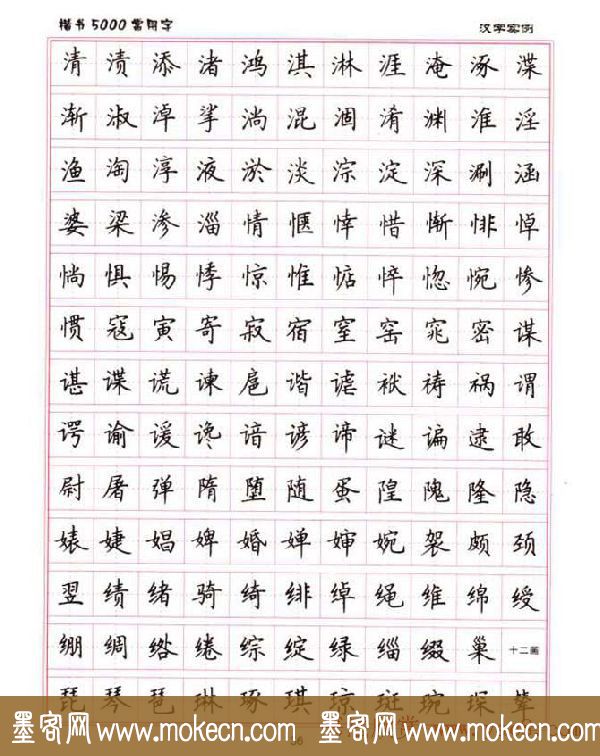 楷书5000常用字 汉字实例
清 渍 添 渚 鸿 淇 淋 涯 淹 涿 渫
渐 淑 淖 挲 淌 混 涸 淆 渊 淮 淫
渔 淘 淳 液 淤 淡 淙 淀 深 涮 涵
婆 梁 渗 淄 情 惬 悻 惜 惭 悱 悼
惝 惧 惕 悸 惊 惟 惦 悴 惚 惋 惨
惯 寇 寅 寄 寂 宿 窒 窑 窕 密 谋
谌 谍 谎 谏 扈 谐 谑 裉 祷 祸 谓
谔 谕 谖 谗 谙 谚 谛 谜 谝 逮 敢
尉 屠 弹 隋 堕 随 蛋 隍 隗 隆 隐
婊 婕 娼 婢 婚 婵 婶 婉 袈 颇 颈
翌 绩 绪 骑 绮 绯 绰 绳 维 绵 绶
绷 绸 绺 绻 综 绽 绿 缁 缀 巢 十二画
琵 琴 琶 琳 琢 琪 琼 斑 琬 琛 辇
墨客网 www.mokecn.com 墨客网 www.mokecn.com